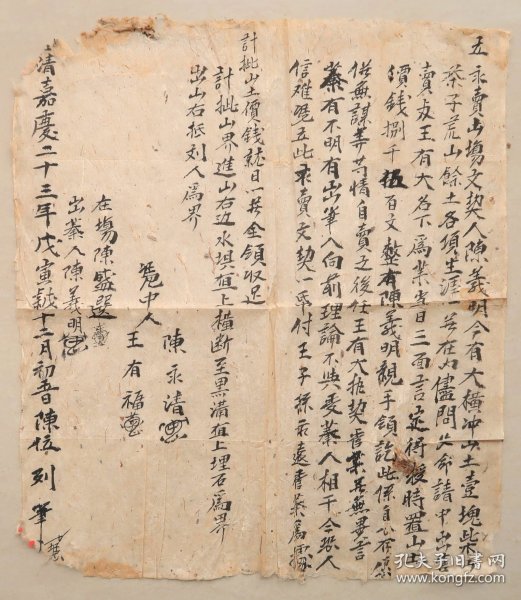 立永賣山場文契人陳義明今有大橫冲山土壹塊柴
茶子荒山餘土各項生涯一共在內儘問親請中出
賣与王有大名下為業當日三面言定得授時置山土
價錢捌千伍百文整有陳義明親手領訖此係自心
並無謀等苦情自賣之後任王有大執契管業無異言
業有不明有出筆人向前理論不与受業人相干今恐人
信难憑立此永賣文契一帋付王子孫永遠管業為據
計批山土價錢就日一共全領收足
計批山界進山右边水垻直上橫断至黑溝直上埋石為界
出山右抵刘人為界
憑中人
陳永清
王有福
在塲陳盛選
出業人陳義明
清嘉慶二十三年戊寅歲十二月初吾日陳位列筆
孔夫子旧书网
www.kongfz.com